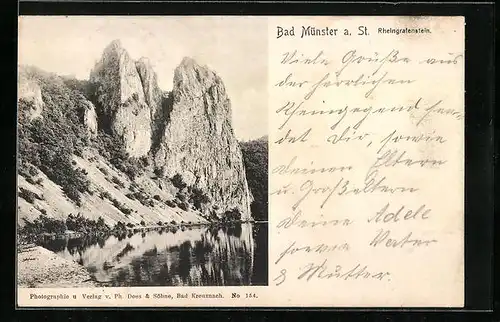 Bad Münster a. St. Rheingrafenstein.
Viele Grüße aus
der herrlichen
Rheingegend sen-
det Dir, sowie
Deinen Eltern
u. Großeltern
Deine Adele
sowie Vater
& Mutter.
Photographie u Verlag v. Ph. Dees & Söhne, Bad Kreuznach. No 154.